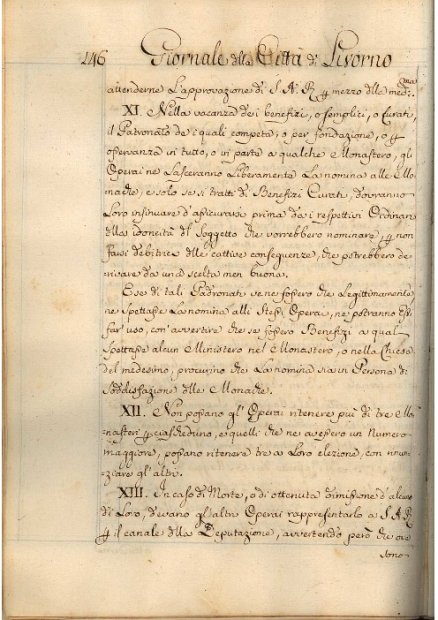 146 Giornale della Città di Livorno
attenderne l'approvazione di S. A. R. p mezzo dlla med:ma
XI. Nella vacanza de i benefizi, o semplici, o Curati,
il Patronato de i quali competa, o per fondazione, o p
osservanza in tutto, o in parte a qualche Monastero, gl'
Operai ne lasceranno liberamente la nomina alle Mo
nache, e solo se si tratti di Benefizi Curati, dovranno
loro insinuare d'assicurarsi prima da i respettivi Ordinari
dlla idoneità dl soggetto che vorrebbero nominare, p non
farsi debitrici dlle cattive conseguenze, che potrebbero de
rivare da una scelta men buona.
E se di tali Padronati se ne fossero che legittimamente
ne spettasse la nomina alli stessi Operai, ne potranno Essi
far uso, con avvertire che se fossero Benefizi a qual
spettasse alcun Ministero nel Monastero, o nella Chiesa
del medesimo, procurino che la nomina sia in Persona di
soddisfazione dlle Monache.
XII. Non possano gl'Operai ritenere più di tre Mo
nasteri p ciascheduno, e quelli che ne avessero un Numero
maggiore, possano ritenere tre a loro elezione, con rinun
ziare gl'altri.
XIII. In caso di Morte, o di ottenuta dimissione d'alcuno
di loro, devano gl'altri Operai rappresentarlo a S. A. R.
p il canale dlla Deputazione, avvertendo però che ove
sono